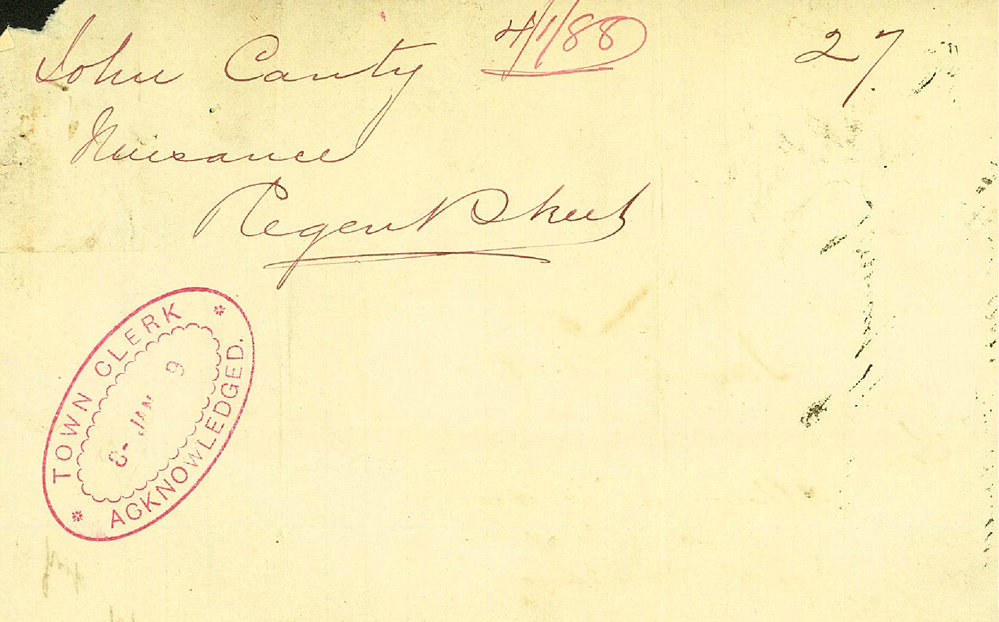 John Canty 4/1/88 27
Nuisance
Regent Street
TOWN CLERK
8- JAN 9
ACKNOWLEDGED.